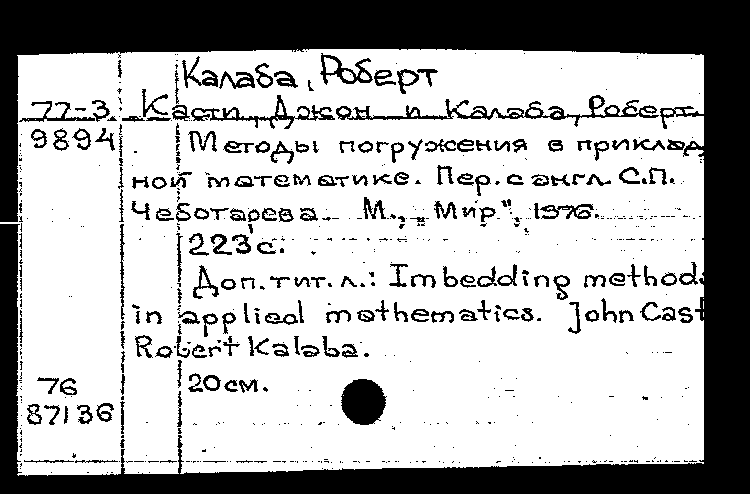 Калаба, Роберт
77-3 Касти, Джон и Калаба, Роберт.
9894 Методы погружения в приклад
ной математике. Пер. с англ. С.П.
Чеботарева. М., „Мир", 1976.
223 с.
Доп. тит. л.: Imbedding methods
in applied mathematics. John Cast
Robert Kalaba.
76 20 см.
87136